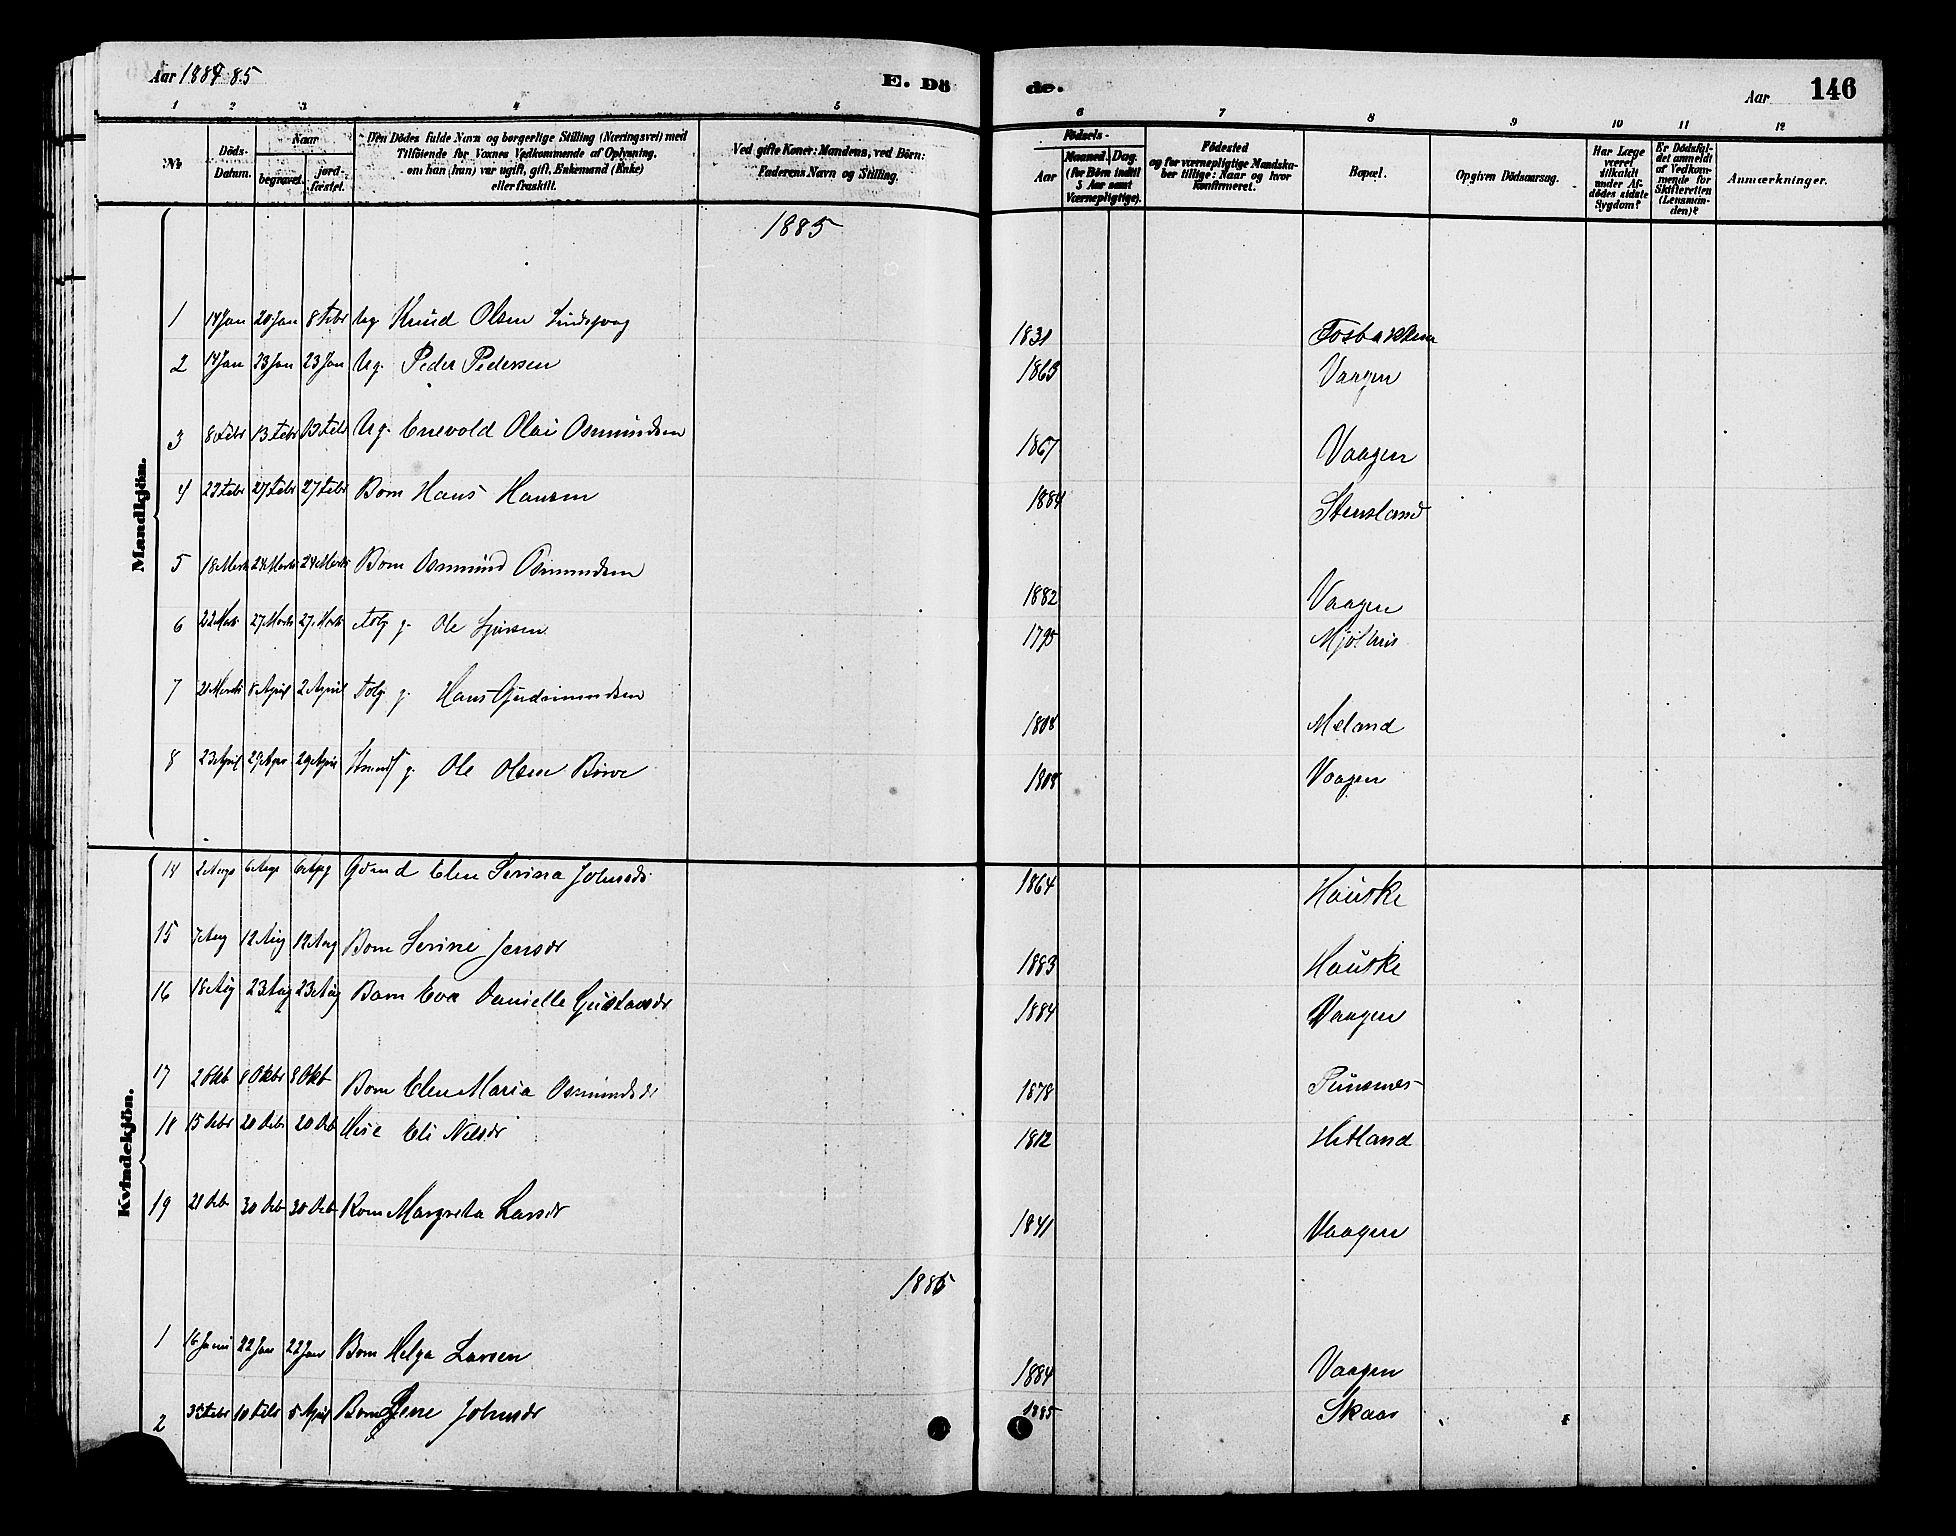 Aar 1884-85
E. Dö
de.
Aar
146
1 2 3 4 5 6 7 8 9 10 11 12
No
Döds-Datum.
Naar
begravet.
jord-fæstet.
Den Dödes fulde Navn og borgerlige Stilling (Næringsvei) med
Tilföiende for Voxnes Vedkommende af Oplysning,
om han (hun) var ugift, gift, Enkemand (Enke)
eller fraskilt.
Ved gifte Koner: Mandens, ved Börn:
Faderens Navn og Stilling.
Födsels-
Aar
Maaned. Dag.
(for Börn indtil
5 Aar samt
Værnepligtige).
Födested
og for værnepligtige Mandska-
ber tillige: Naar og hvor
konfirmeret.
Bopæl.
Opgiven Dödsaarsag.
Har Læge
været
tilkaldt
under Af-
dödes sidste
Sygdom?
Er Dödsfal-
det anmeldt
af Vedkom-
mende for
Skifteretten
(Lensman-
den)?
Anmærkninger.
Mandkjön.
1885
1 14 Jan 20 Jan 8 Febr Ug Knud Olsen 1831 Fosbakken
2 14 Jan 23 Jan 23 Jan Ug. Peder Pedersen 1863 Vaagen
3 8 Febr 13 Febr 13 Febr Ug. Enevold Olai Osmundsen 1867 Vaagen
4 23 Febr 27 Febr 27 Febr Barn Hans Hansen 1884 Stensland
5 18 Marts 24 Marts 24 Marts Barn Osmund Osmundsen 1882 Vaagen
6 22 Marts 27 Marts 27 Marts Folg g. Ole 1795 Mjølhus
7 21 Marts 8 April 2 April Folg g. Hans Gudmundsen 1808 Meland
8 23 April 29 Apr 29 April g. Ole Olsen 1808 Vaagen
Kvindekjön.
14 2 Augs 6 Augs 6 Aug Elen Serina Johnsdr 1864 Hauske
15 7 Aug 12 Aug 12 Aug Barn Serine Jensdr 1883 Hauske
16 18 Aug 23 Aug 23 Aug Barn Eva Danielle Gustavsdr 1884 Vaagen
17 2 Okb 8 Okbr 8 Okb Barn Elen Maria Osmundsdr 1878
18 15 Debr 20 Debr 20 Deb Eli Nilsdr 1812 Hetland
19 21 Deb 30 Deb 30 Deb Kone Margreta Larsdr 1841 Vaagen
1885
1 16 Janu 22 Jan 22 Jan Barn Helga Larsen 1884 Vaagen
2 3 Febr 10 Febr 5 April Barn Johnsdr 1885 Skaar